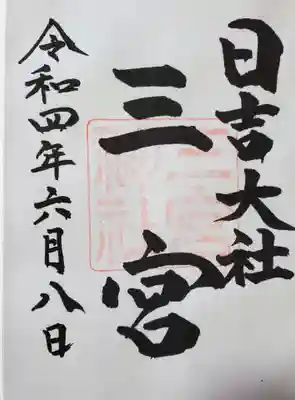 日吉大社
三宮
令和四年六月八日